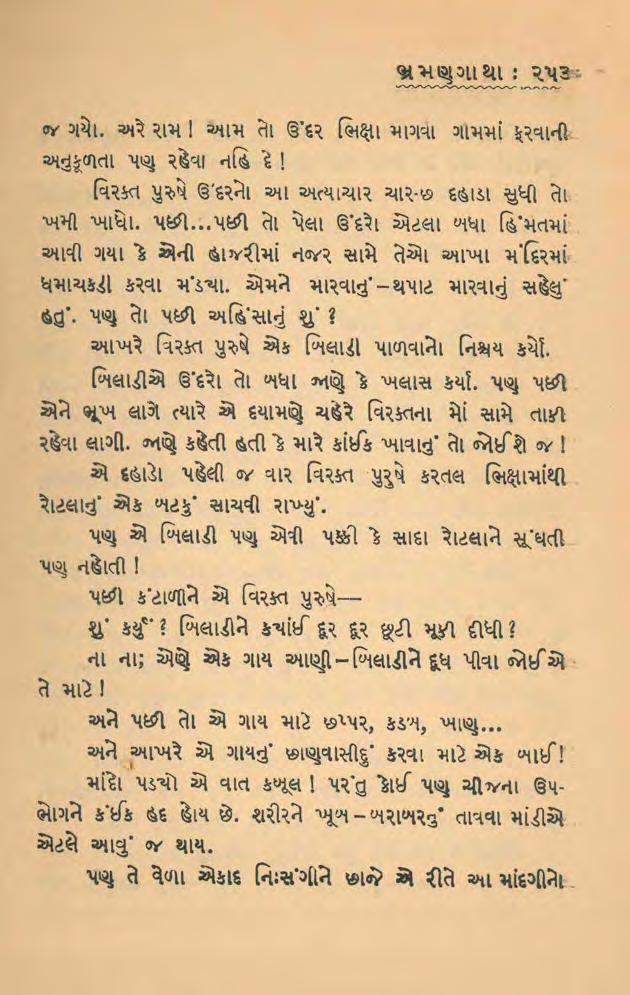 ભ્રમણગાથા : ૨૫૩
જ ગયો. અરે રામ ! આમ તો ઉંદર ભિક્ષા માગવા ગામમાં ફરવાની
અનુકૂળતા પણ રહેવા નહિ દે !
વિરક્ત પુરુષે ઉંદરનો આ અત્યાચાર ચાર-છ દહાડા સુધી તો
ખમી ખાધો. પછી...પછી તો પેલા ઉંદરો એટલા બધા હિંમતમાં
આવી ગયા કે એની હાજરીમાં નજર સામે તેઓ આખા મંદિરમાં
ધમાચકડી કરવા મંડ્યા. એમને મારવાનું–થપાટ મારવાનું સહેલું
હતું. પણ તો પછી અહિંસાનું શું ?
આખરે વિરક્ત પુરુષે એક બિલાડી પાળવાનો નિશ્ચય કર્યો.
બિલાડીએ ઉંદરો તો બધા જાણે કે ખલાસ કર્યા. પણ પછી
એને ભૂખ લાગે ત્યારે એ દયામણે ચહેરે વિરક્તના મોં સામે તાકી
રહેવા લાગી. જાણે કહેતી હતી કે મારે કાંઈક ખાવાનું તો જોઈશે જ !
એ દહાડો પહેલી જ વાર વિરક્ત પુરુષે કરતલ ભિક્ષામાંથી
રોટલાનું એક બટકું સાચવી રાખ્યું.
પણ એ બિલાડી પણ એવી પક્કી કે સાદા રોટલાને સૂંઘતી
પણ નહોતી !
પછી કંટાળીને એ વિરક્ત પુરુષે—
શું કર્યું ? બિલાડીને ક્યાંઈ દૂર દૂર છૂટી મૂકી દીધી ?
ના ના; એણે એક ગાય આણી–બિલાડીને દૂધ પીવા જોઈએ
તે માટે !
અને પછી તો એ ગાય માટે છપ્પર, કડબ, ખાણ...
અને આખરે એ ગાયનું છાણવાસીદું કરવા માટે એક બાઈ !
માંદો પડ્યો એ વાત કબૂલ ! પરંતુ કોઈ પણ ચીજના ઉપ-
ભોગને કંઈક હદ હોય છે. શરીરને ખૂબ–બરાબરનું તાવવા માંડીએ
એટલે આવું જ થાય.
પણ તે વેળા એકાદ નિઃસંગીને છાજે એ રીતે આ માંદગીનો